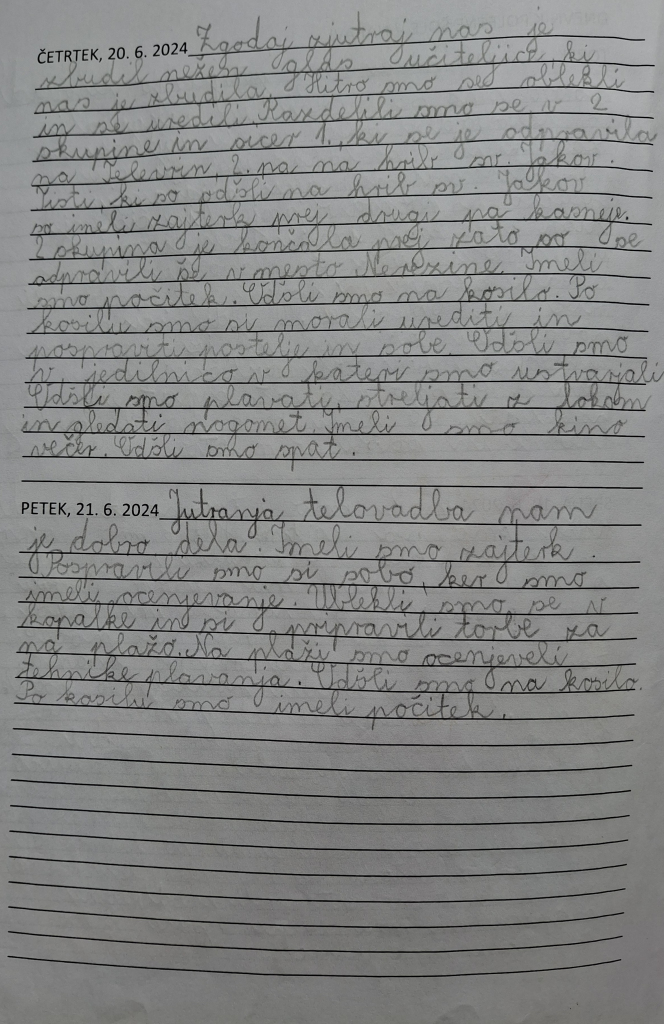 ČETRTEK, 20. 6. 2024 Zgodaj zjutraj nas je
zbudil nežen glas učiteljice ki
nas je zbudila. Hitro smo se oblekli
in se uredili. Razdelili smo se v 2
skupine in sicer 1. ki se je odpravila
na Televrin, 2. pa na hrib sv. Jakov.
Tisti, ki so odšli na hrib sv. Jakov
so imeli zajterk prej drugi pa kasneje.
2 skupina je končala prej zato so se
odpravili še v mesto Nerezine. Imeli
smo počitek. Odšli smo na kosilo. Po
kosilu smo si morali urediti in
pospraviti postelje in sobe. Odšli smo
v jedilnico v kateri smo ustvarjali
Odšli smo plavati, streljati z lokom
in gledati nogomet. Imeli smo kino
večer. Odšli smo spat.
PETEK, 21. 6. 2024 Jutranja telovadba nam
je dobro dela. Imeli smo zajterk.
Pospravili smo si sobo, ker smo
imeli ocenjevanje. Oblekli smo se v
kopalke in si pripravili torbe za
na plažo. Na plaži smo ocenjeveli
tehnike plavanja. Odšli smo na kosilo.
Po kosilu smo imeli počitek.